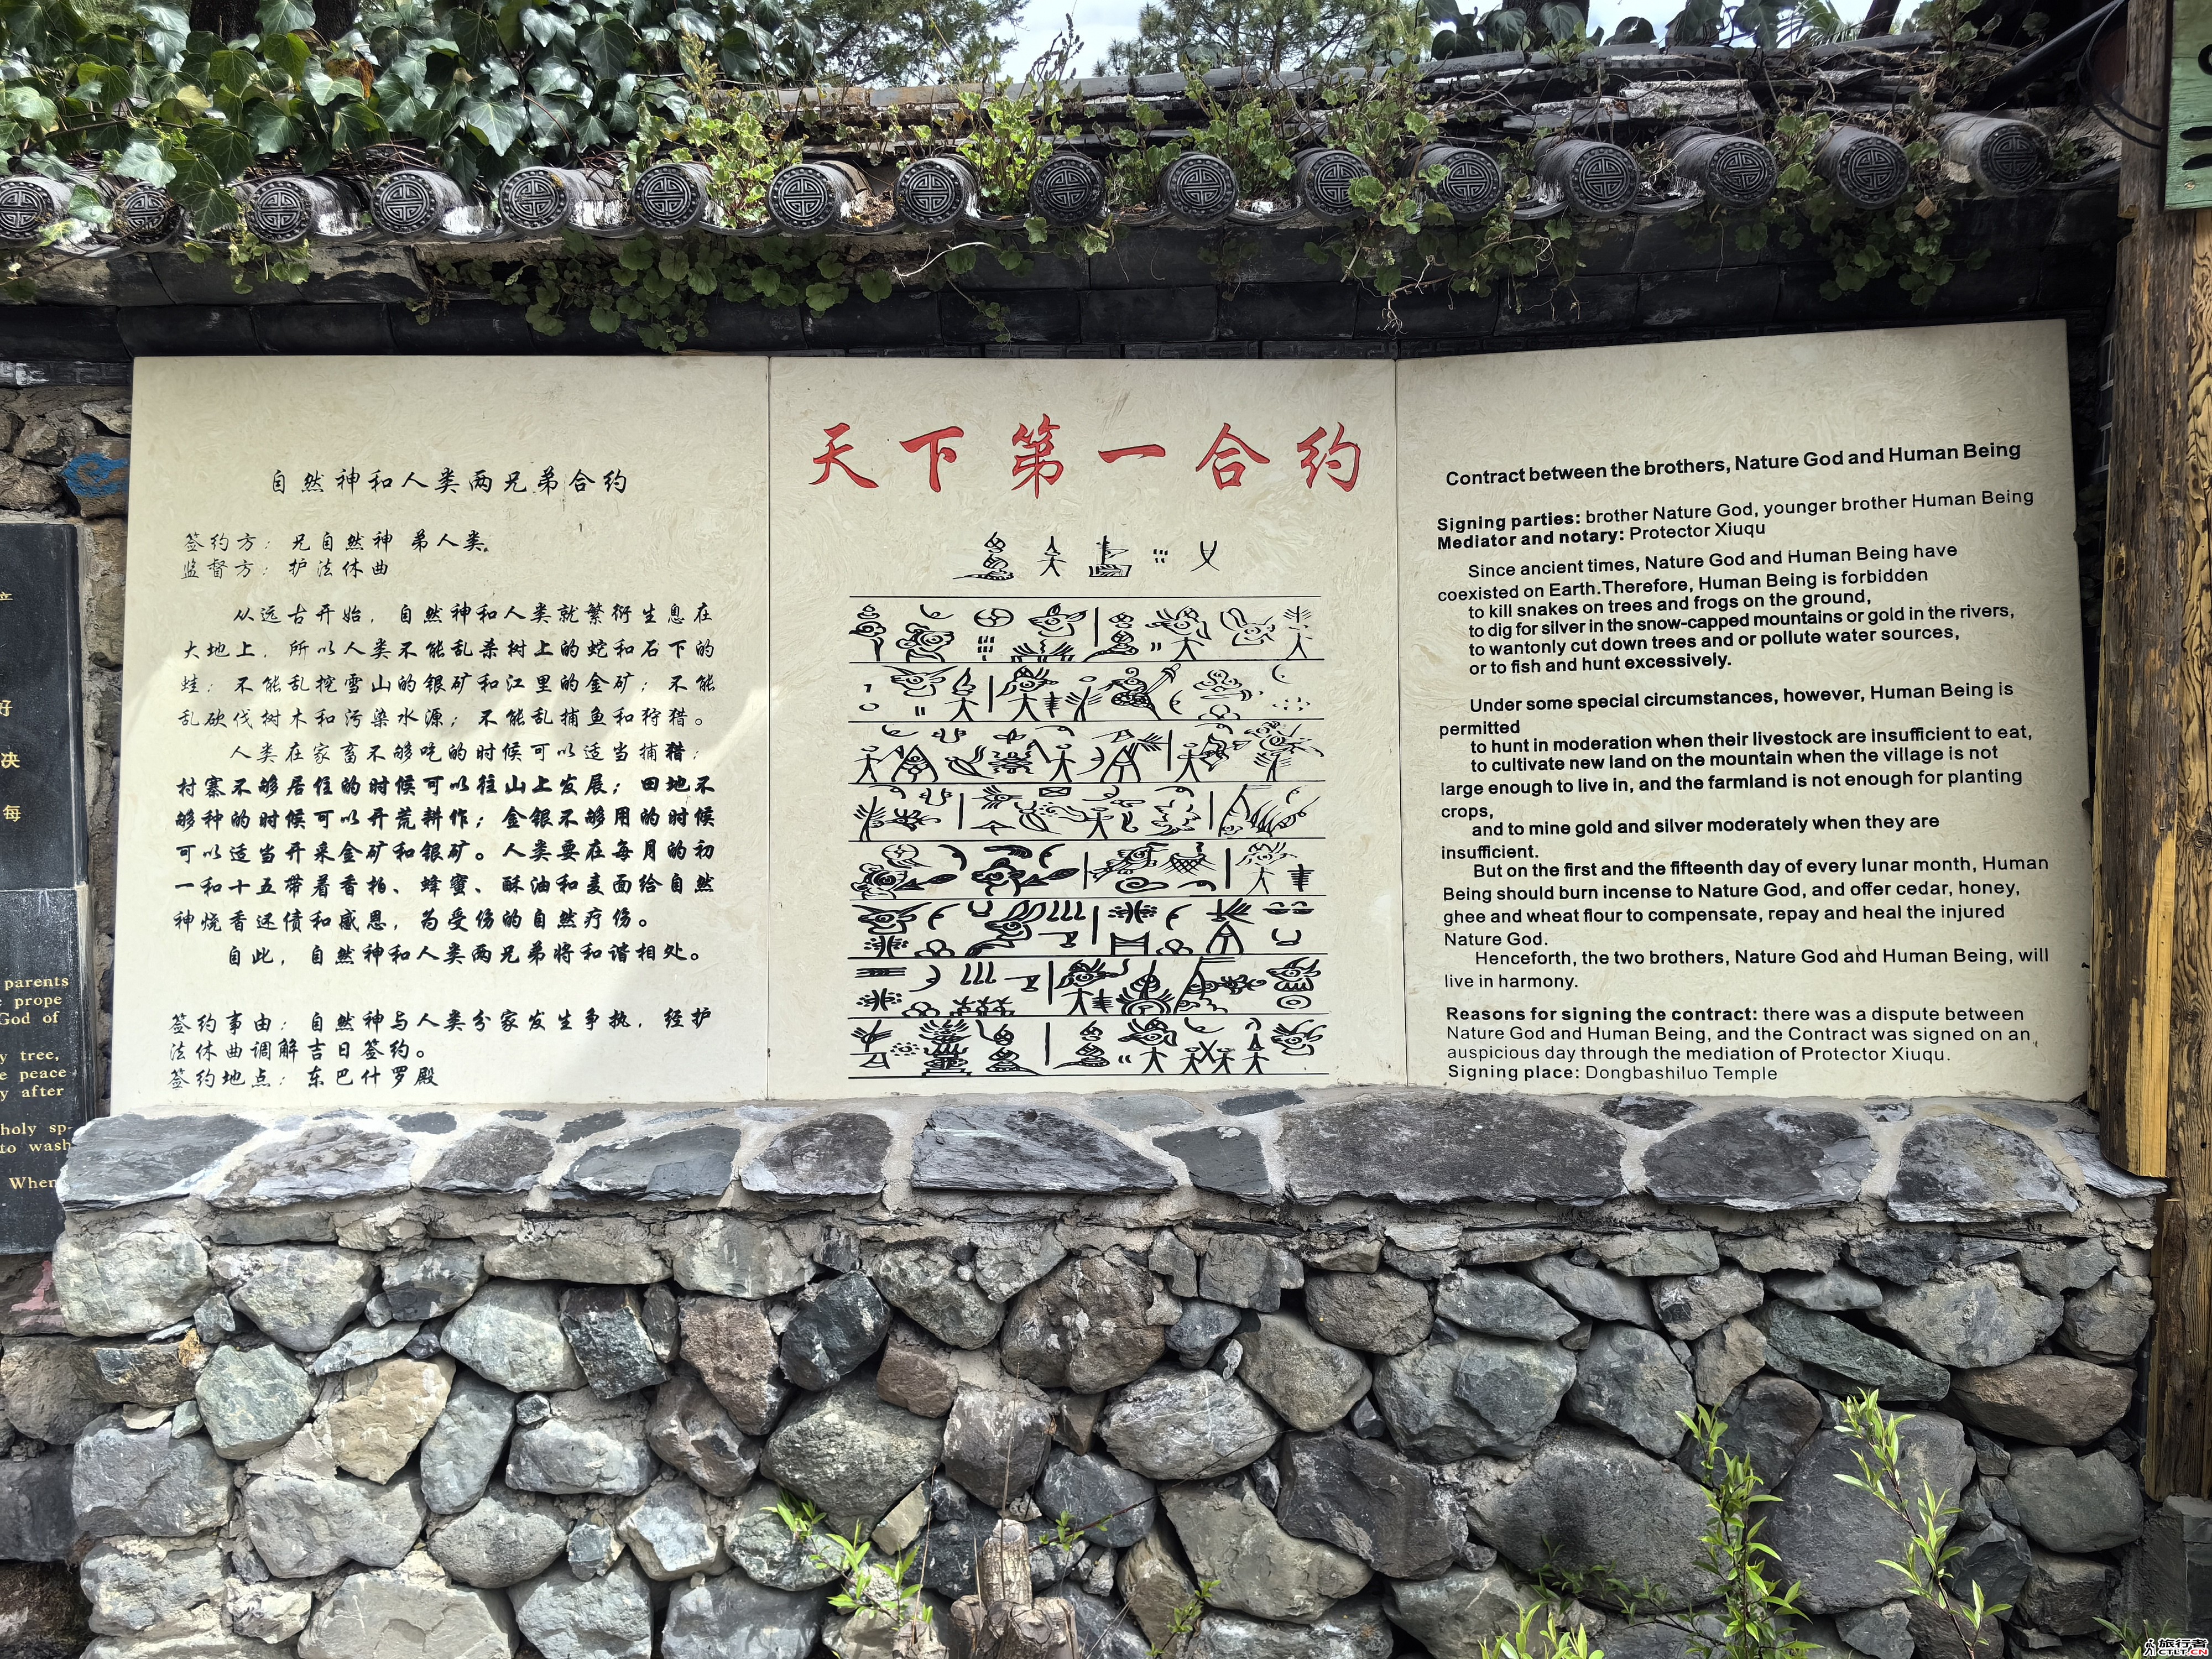 自然神和人类两兄弟合约
签约方：兄自然神 弟人类
监督方：护法休曲
从远古开始，自然神和人类就繁衍生息在
大地上，所以人类不能乱杀树上的蛇和石下的
蛙；不能乱挖雪山的银矿和江里的金矿；不能
乱砍伐树木和污染水源；不能乱捕鱼和狩猎。
人类在家畜不够吃的时候可以适当捕猎；
村寨不够居住的时候可以往山上发展；田地不
够种的时候可以开荒耕作；金银不够用的时候
可以适当开采金矿和银矿。人类要在每月的初
一和十五带着香柏、蜂蜜、酥油和麦面给自然
神烧香还债和感恩，为受伤的自然疗伤。
自此，自然神和人类两兄弟将和谐相处。
签约事由：自然神与人类分家发生争执，经护
法休曲调解吉日签约。
签约地点：东巴什罗殿
天下第一合约
Contract between the brothers, Nature God and Human Being
Signing parties: brother Nature God, younger brother Human Being
Mediator and notary: Protector Xiuqu
Since ancient times, Nature God and Human Being have
coexisted on Earth.Therefore, Human Being is forbidden
to kill snakes on trees and frogs on the ground,
to dig for silver in the snow-capped mountains or gold in the rivers,
to wantonly cut down trees and or pollute water sources,
or to fish and hunt excessively.
Under some special circumstances, however, Human Being is
permitted
to hunt in moderation when their livestock are insufficient to eat,
to cultivate new land on the mountain when the village is not
large enough to live in, and the farmland is not enough for planting
crops,
and to mine gold and silver moderately when they are
insufficient.
But on the first and the fifteenth day of every lunar month, Human
Being should burn incense to Nature God, and offer cedar, honey,
ghee and wheat flour to compensate, repay and heal the injured
Nature God.
Henceforth, the two brothers, Nature God and Human Being, will
live in harmony.
Reasons for signing the contract: there was a dispute between
Nature God and Human Being, and the Contract was signed on an
auspicious day through the mediation of Protector Xiuqu.
Signing place: Dongbashiluo Temple
好
决
每
parents
prope
God of
y tree,
e peace
y after
holy sp-
to wash
When
旅行者
CTLT.CN